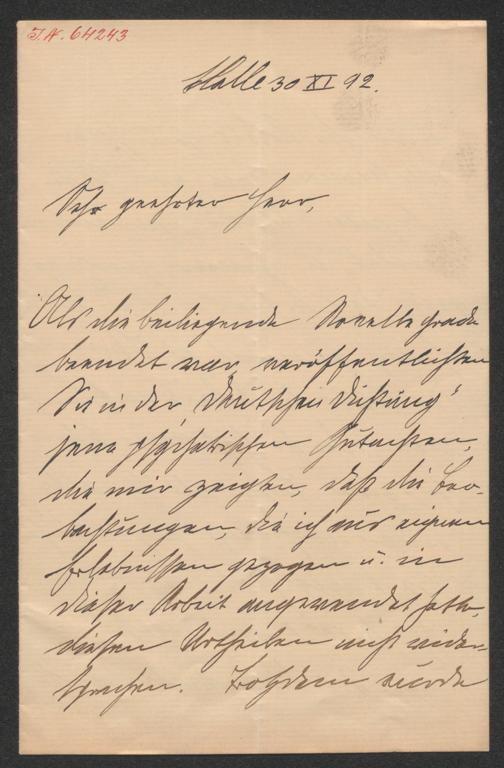 I.N. 64243
Halle 30 XI 92.
Sehr geehrter Herr,
Als die beiliegende Novelle grade
beendet war, veröffentlichten
Sie in der „Deutschen Dichtung"
jene psychiatrischen Gutachten,
die mir zeigten, daß die Beo-
bachtungen, die ich aus eignen
Erlebnissen gezogen u. in
dieser Arbeit angewendet hatte,
diesen Urtheilen nicht wider-
sprechen. Trotzdem würde